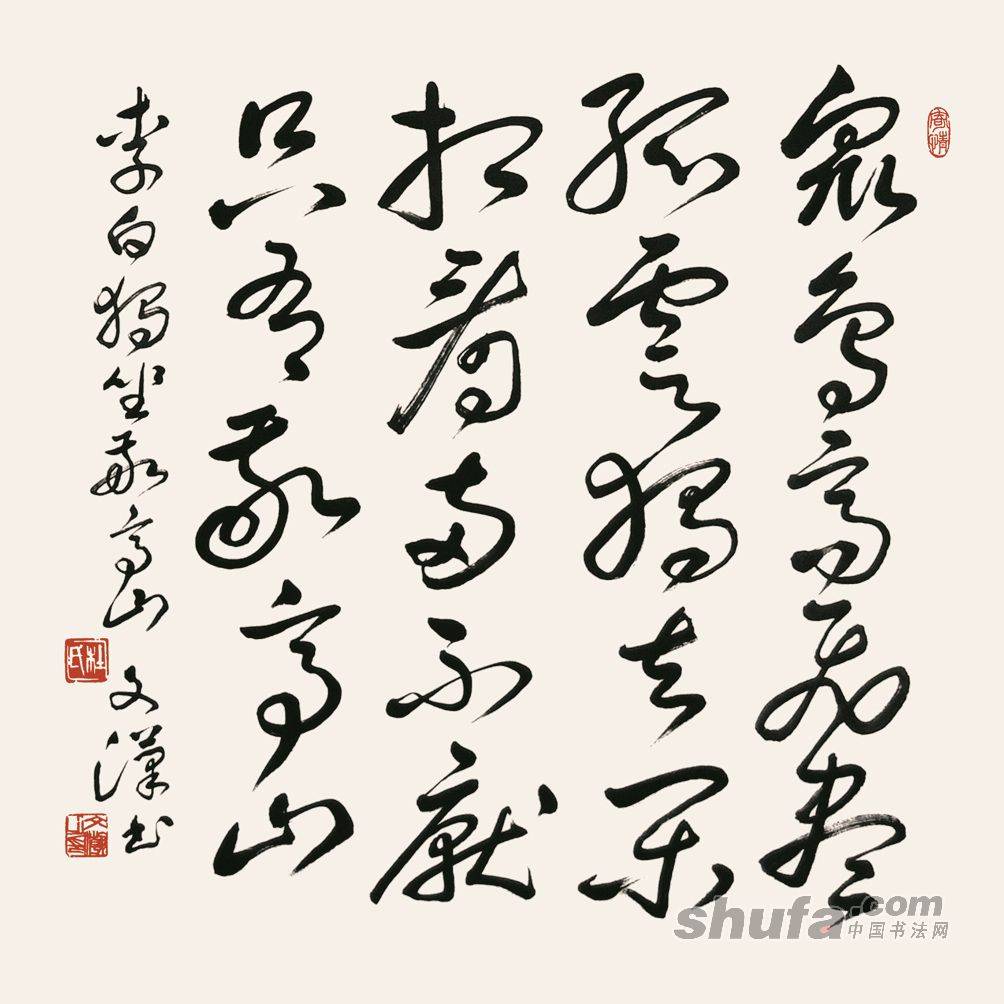 衆鳥高飛盡
孤雲獨去閑
相看兩不厭
只有敬亭山
李白獨坐敬亭山 文漢書
杜氏
shufa.com
中国书法网